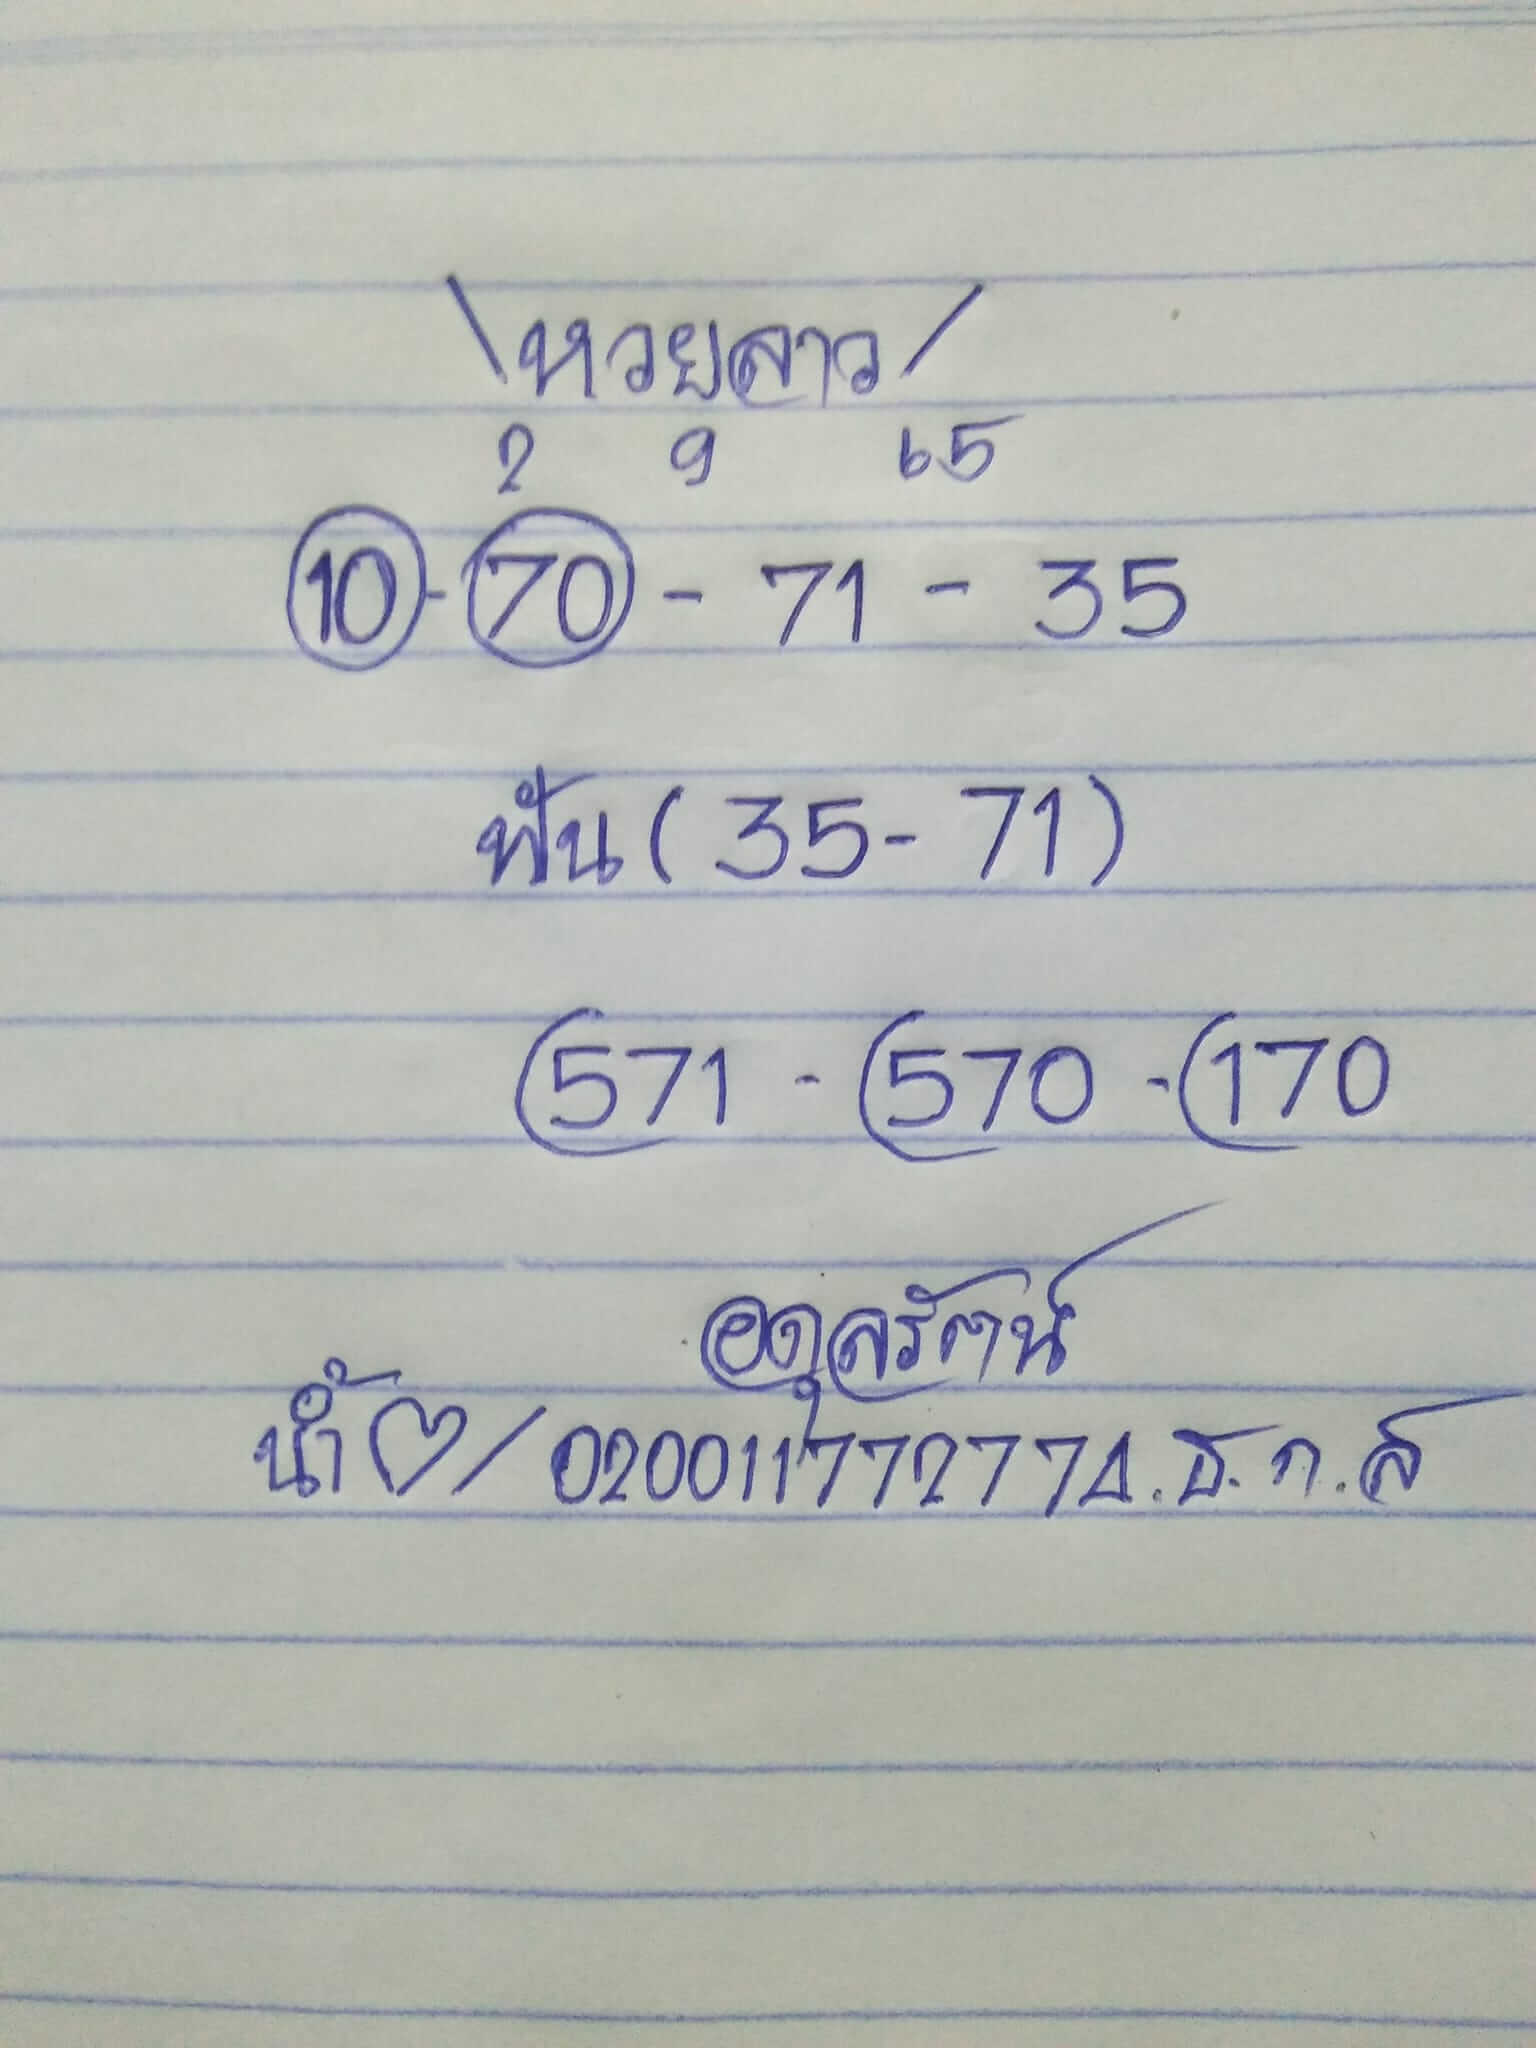 \หวยลาว/
2 9 65
10 - 70 - 71 - 35
ฟัน (35 - 71)
571 - 570 - 170
อดุลรัตน์
น้ำ♡/020011772774.ธ.ก.ส